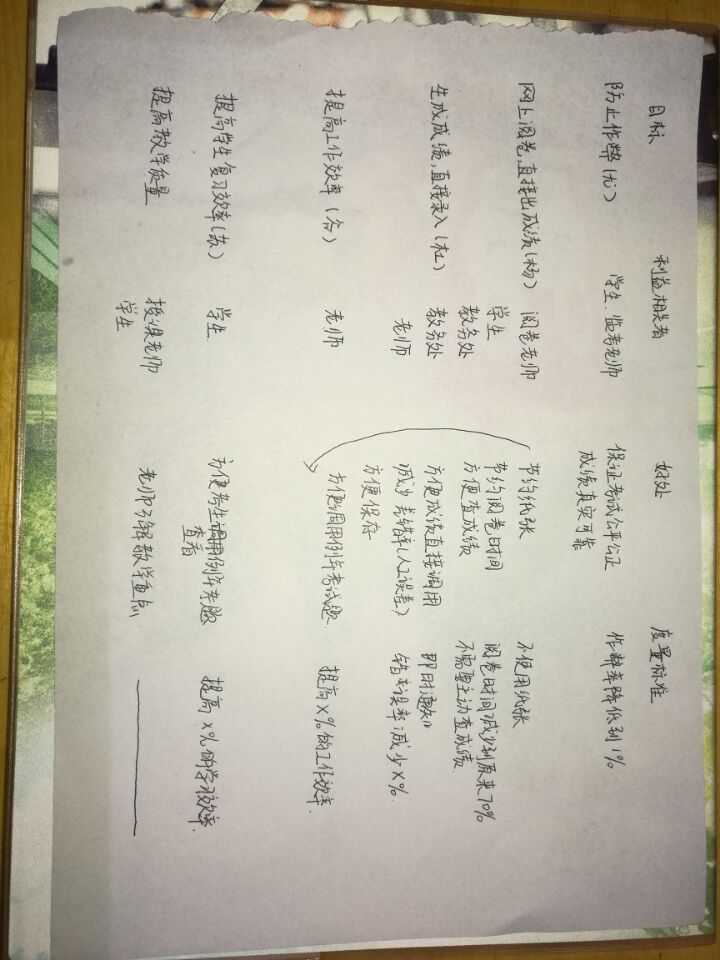 目标 利益相关者 好处 度量标准
防止作弊(尤) 学生 监考老师 保证考试公平公正 作弊率降低到1%
成绩真实可靠
网上阅卷,直接出成绩(杨) 阅卷老师 节约纸张 不使用纸张
学生 节约阅卷时间 阅卷时间减少到原来70%
教务处 方便查成绩 不需要主动查成绩
生成成绩,直接录入(杜) 教务处 方便成绩直接调用 即时通知
老师 减少差错率(人工误差) 错误率减少X%
方便保存
提高工作效率(谷) 老师 方便调用例年考试题 提高X%的工作效率.
提高学生复习效率(苏) 学生 方便考生调用例年考题 提高X%的学习效率.
查看
提高教学质量 授课老师 老师了解教学重点
学生